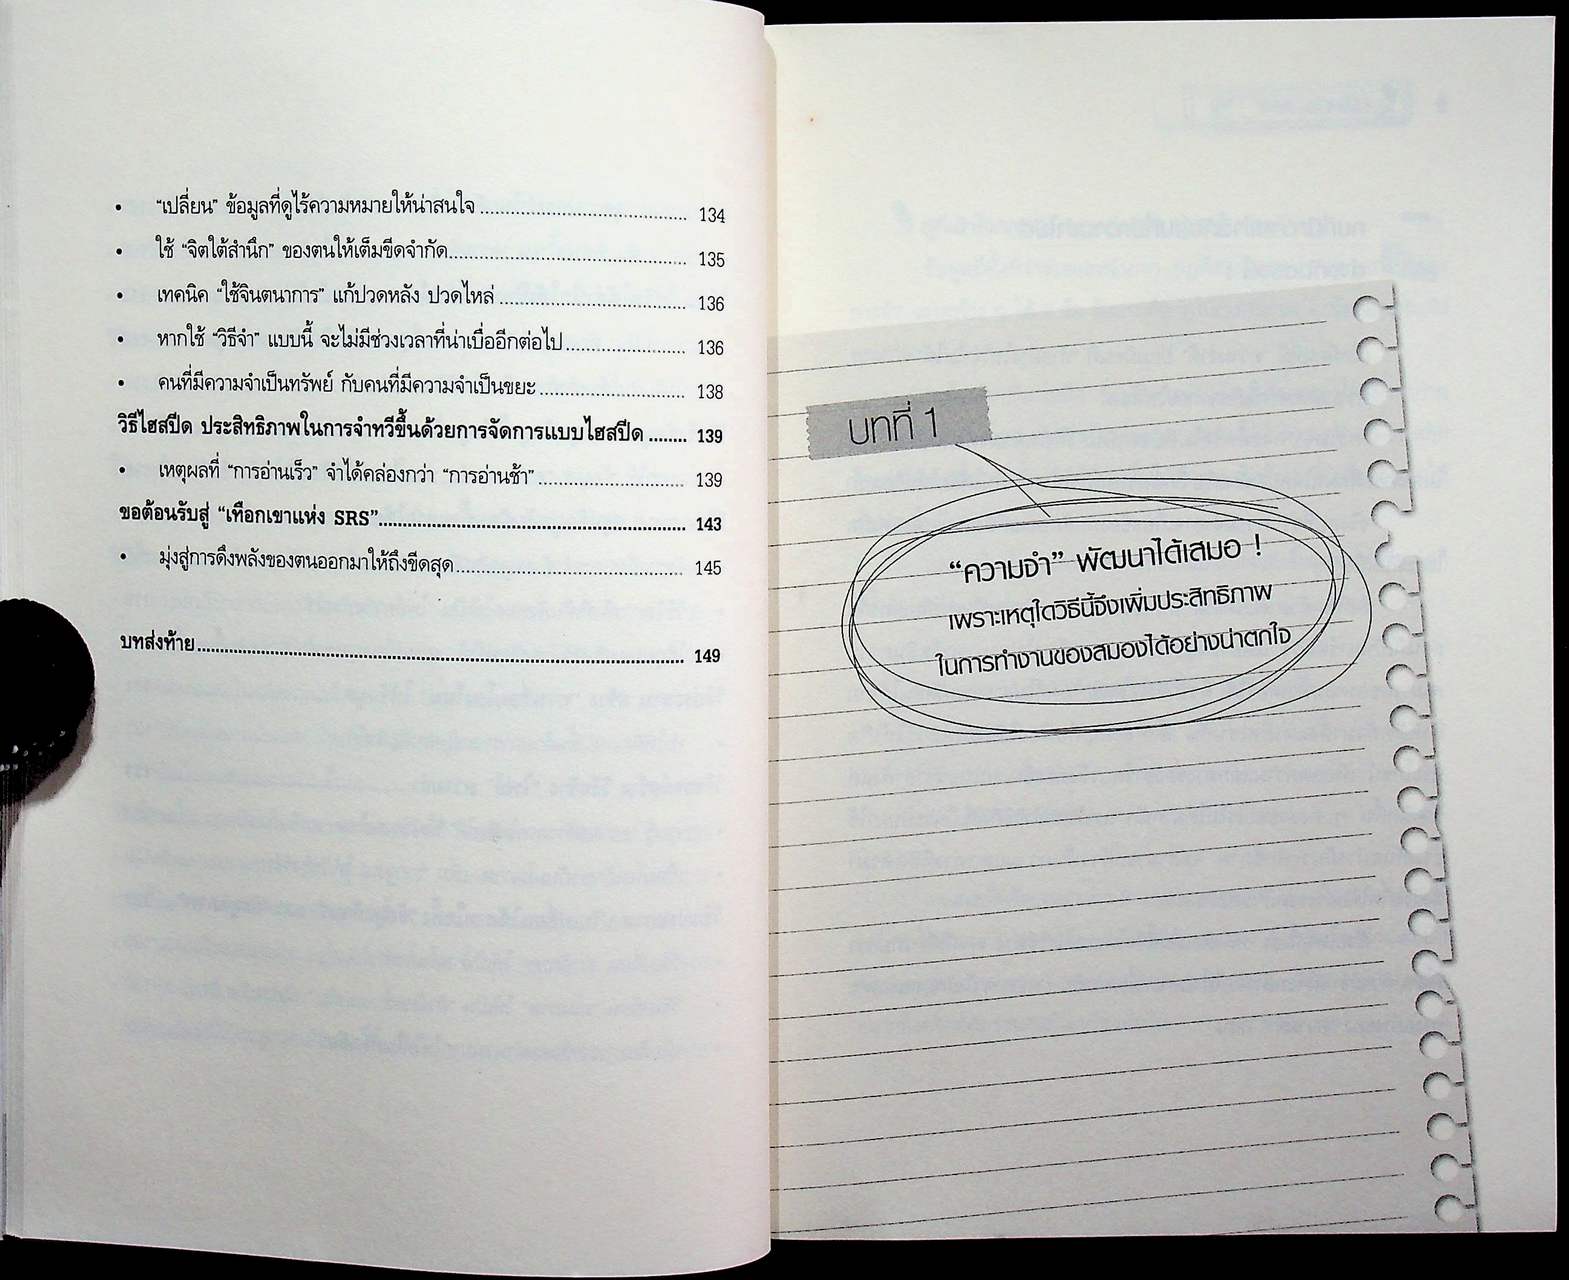 • “เปลี่ยน” ข้อมูลที่ดูไร้ความหมายให้น่าสนใจ ........................................ 134
• ใช้ “จิตใต้สำนึก” ของตนให้เต็มขีดจำกัด ........................................ 135
• เทคนิค “ใช้จินตนาการ” แก้ปวดหลัง ปวดไหล่ ........................................ 136
• หากใช้ “วิธีจำ” แบบนี้ จะไม่มีช่วงเวลาที่น่าเบื่ออีกต่อไป ........................ 136
• คนที่มีความจำเป็นทรัพย์ กับคนที่มีความจำเป็นขยะ ............................ 138
วิธีไฮสปีด ประสิทธิภาพในการจำทวีขึ้นด้วยการจัดการแบบไฮสปีด ........ 139
• เหตุผลที่ “การอ่านเร็ว” จำได้คล่องกว่า “การอ่านช้า” ............................ 139
ขอต้อนรับสู่ “เทือกเขาแห่ง SRS” ........................................................ 143
• มุ่งสู่การดึงพลังของตนออกมาให้ถึงขีดสุด ............................................ 145
บทส่งท้าย ........................................................................................ 149
บทที่ 1
“ความจำ” พัฒนาได้เสมอ !
เพราะเหตุใดวิธีนี้จึงเพิ่มประสิทธิภาพ
ในการทำงานของสมองได้อย่างน่าตกใจ